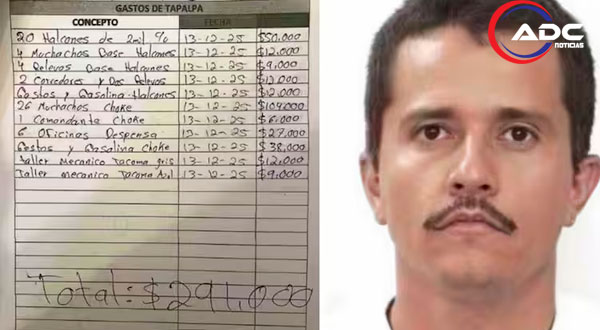 GASTOS DE TAPALPA
CONCEPTO FECHA
20 Halcones de 2mil % 13-12-25 $50,000
4 Muchachos Base Halcones 13-12-25 $12,000
4 Relevos Base Halcones 13-12-25 $9,000
2 Corredores y Dos Relevos 13-12-25 $13,000
Gastos y Gasolina Halcones 13-12-25 $12,000
26 Muchachos Choke 13-12-25 $104,000
1 Comandanta Choke 13-12-25 $6,000
6 Oficinas Despensa 13-12-25 $27,000
Gastos y Gasolina Choke 13-12-25 $38,000
Taller Mecanico Tacoma gris 13-12-25 $12,000
Taller mecanico Tacoma Azul 13-12-25 $9,000
Total: $291,000
ADC
NOTICIAS